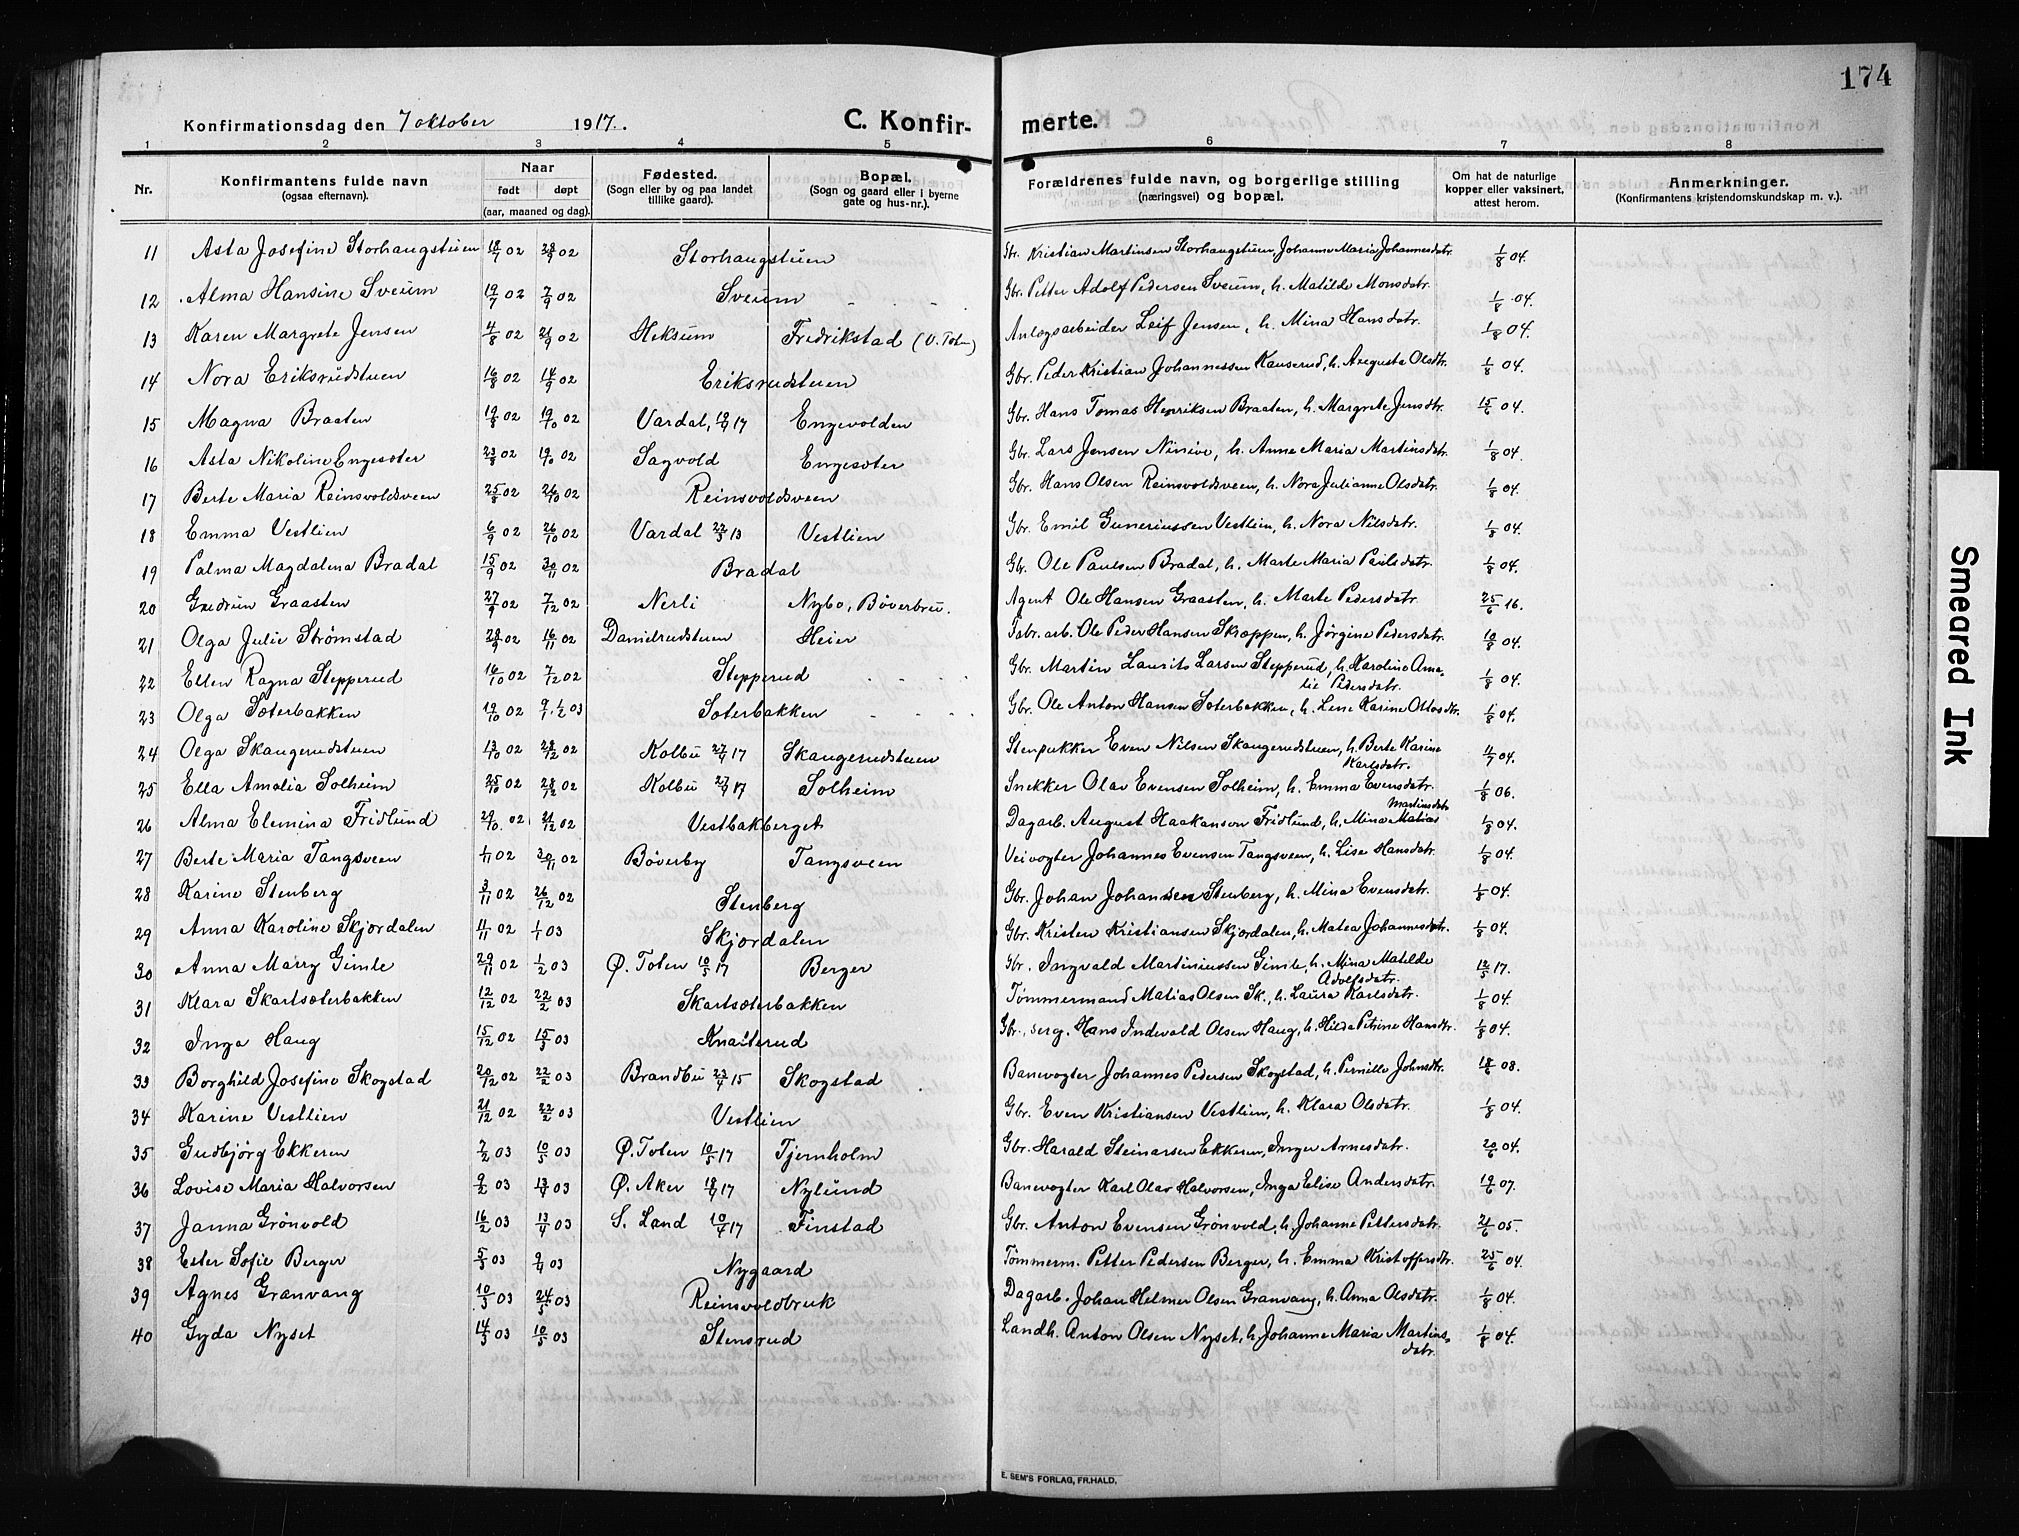 174
Konfirmationsdag den 7 oktober 1917. C. Konfirmerte.
1 2 3 4 5 6 7 8
Nr. Konfirmantens fulde navn (ogsaa efternavn). Naar født døpt (aar, maaned og dag). Fødested. (Sogn eller by og paa landet tillike gaard). Bopæl. (Sogn og gaard eller i byerne gate og hus-nr.). Forældrenes fulde navn, og borgerlige stilling (næringsvei) og bopæl. Om hat de naturlige kopper eller vaksinert, attest herom. Anmerkninger. (Konfirmantens kristendomskundskap m. v.).
11 Asta Josefine Storhaugstuen 18/7 02 28/9 02 Storhaugstuen Gbr. Kristian Martinsen Storhaugstuen, Johanne Marie Johannesdatr. 1/8 04.
12 Alma Hansine Sveum 19/7 02 7/9 02 Sveum Gbr. Petter Adolf Pedersen Sveum, h. Matilde Monsdatr. 1/8 04.
13 Karen Margrete Jensen 4/8 02 21/9 02 Heksum Fredrikstad (V. Toten) Anlægsarbeider Leif Jensen, h. Mina Hansdatr. 1/8 04.
14 Nora Eriksrudstuen 16/8 02 14/9 02 Eriksrudstuen Gbr. Peder Kristian Johannessen Kauserud, h. Augusta Olsdtr. 1/8 04.
15 Magna Braaten 19/8 02 19/10 02 Vardal, 17 Engevolden Gbr. Hans Tomas Henriksen Braaten, h. Margrete Jensdtr. 15/6 04.
16 Asta Nikoline Engesæter 23/8 02 19/10 02 Sagvold Engesæter Gbr. Lars Jensen Ninive, h. Anne Maria Martinsdatr. 1/8 04.
17 Berte Maria Reinsvoldsveen 25/8 02 26/10 02 Reinsvoldsveen Gbr. Hans Olsen Reinsvoldsveen, h. Nora Julianne Olsdatr. 1/8 04.
18 Emma Vestlien 6/9 02 26/10 02 Vardal 22/3 13 Vestlien Gbr. Emil Guneriussen Vestlien, h. Nora Nilsdatr. 1/8 04.
19 Palma Magdalena Bradal 15/9 02 30/11 02 Bradal Gbr. Ole Paulsen Bradal, h. Marte Maria Paulsdatr. 1/8 04.
20 Gudrun Graasten 27/9 02 7/12 02 Nerli Nybo, Bøverbru. Agent Ole Hansen Graasten, h. Marte Pedersdatr. 25/6 16.
21 Olga Julie Strømstad 28/9 02 16/11 02 Danielrudstuen Heier Fabr. arb. Ole Peder Hansen Skræppen, h. Jørgine Pedersdatr. 10/8 04.
22 Ellen Ragna Stepperud 16/10 02 7/12 02 Stepperud Gbr. Martin Laurits Larsen Stepperud, h. Karoline Amalie Pedersdatr. 1/8 04.
23 Olga Sæterbakken 19/10 02 9/1 1/2 03 Sæterbakken Gbr. Ole Anton Hansen Sæterbakken, h. Lene Karine Ottosdtr. 1/8 04.
24 Olga Skaugerudstuen 13/10 02 28/12 02 Kolbu 27/4 17 Skaugerudstuen Stenpukker Even Nilsen Skaugerudstuen, h. Berte Karine Karlsdatr. 4/7 04.
25 Ella Amalia Solheim 25/10 02 28/12 02 Kolbu 17 Solheim Snekker Olav Evensen Solheim, h. Emma Evensdatr. 1/8 06.
26 Alma Elemina Fridlund 29/10 02 21/12 02 Vestbakberget Dagarb. August Haakanson Fridlund, h. Mina Matias Martinsdatr. 1/8 04.
27 Berte Maria Tangsveen 1/11 02 30/11 02 Bøverby Tangsveen Veivogter Johannes Evensen Tangsveen, h. Lise Hansdatr. 1/8 04.
28 Karine Stenberg 3/11 02 26/12 02 Stenberg Gbr. Johan Johansen Stenberg, h. Mina Evensdatr. 1/8 04.
29 Anna Karoline Skjordalen 4/11 02 1/1 03 Skjordalen Gbr. Kristen Kristiansen Skjordalen, h. Matea Johannesdtr. 1/8 04.
30 Anna Marry Gimle 29/11 02 1/2 03 Ø. Toten 10/5 17 Berger Gbr. Ingvald Martiniussen Gimle, h. Mina Matilde Adolfsdatr. 12/5 17.
31 Klara Skartsæterbakken 12/12 02 22/2 03 Skartsæterbakken Tømmermand Matias Olsen Sk., h. Laura Karlsdatr. 1/8 04.
32 Inga Haug 15/12 02 15/3 03 Knaiterud Gbr., serg. Hans Indevald Olsen Haug, h. Hilda Petrine Hansdtr. 1/8 04.
33 Borghild Josefine Skogstad 20/12 02 22/2 03 Brandbu 23/4 15 Skogstad Banevogter Johannes Pedersen Skogstad, h. Pernille Johnsdtr. 18/6 08.
34 Karine Vestlien 21/12 02 22/2 03 Vestlien Gbr. Even Kristiansen Vestlien, h. Klara Olsdatr. 1/8 04.
35 Gudbjørg Ekkeren 7/2 03 10/5 03 Ø. Toten 10/5 17 Tjernholm Gbr. Harald Steinarsen Ekkeren, Inger Arnesdatr. 20/6 04.
36 Lovise Maria Halvorsen 9/2 03 13/4 03 Ø. Aker 17 Nylund Banevogter Karl Olav Halvorsen, Inga Elise Andersdatr. 19/6 07.
37 Janna Grønvold 16/2 03 13/4 03 S. Land 10/4 17 Finstad Gbr. Anton Evensen Grønvold, h. Johanne Pettersdatr. 21/6 05.
38 Ester Sofie Berger 5/3 03 9/4 03 Nygaard Tømmerm. Petter Pedersen Berger, h. Emma Kristoffersdtr. 25/6 04.
39 Agnes Granvang 10/3 03 24/5 03 Reinsvoldbruk Dagarb. Johan Helmer Olsen Granvang, h. Anna Olsdatr. 1/8 04.
40 Gyda Nyset 14/3 03 10/5 03 Stensrud Landh. Anton Olsen Nyset, h. Johanne Maria Martinsdatr. 1/8 04.
E. SEM'S FORLAG, FR.HALD.
Smeared Ink